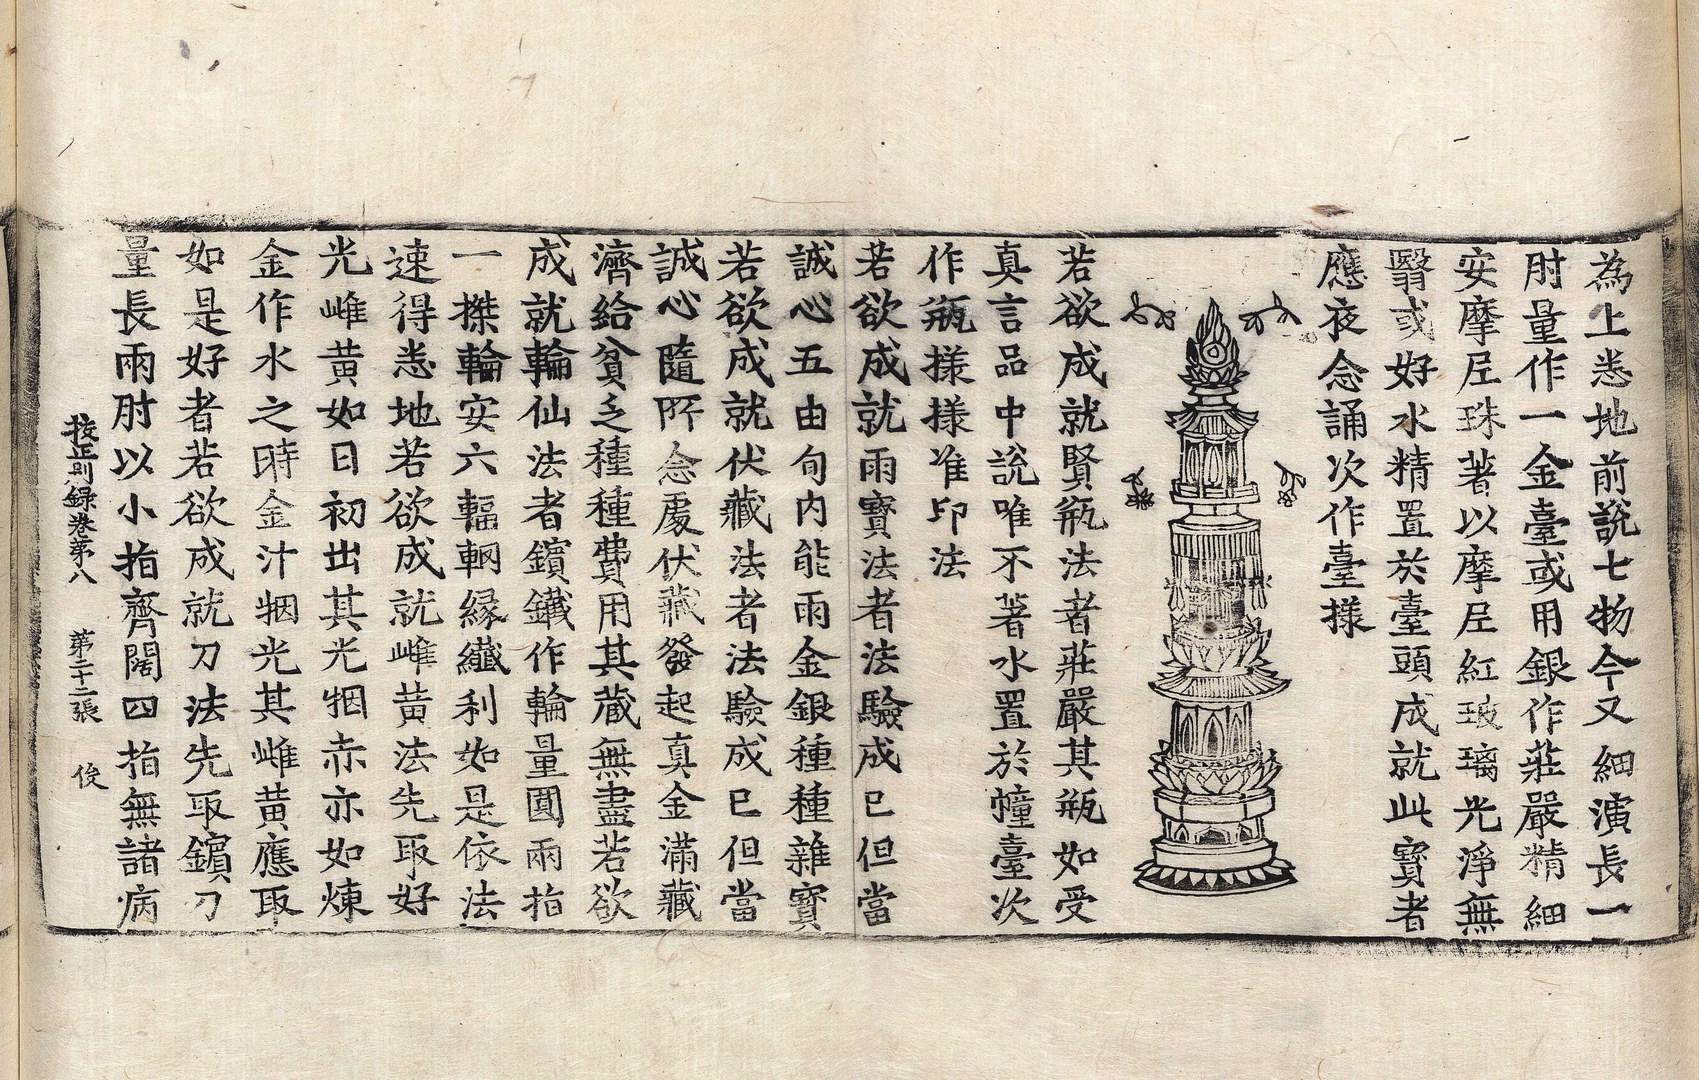 為上悉地前說七物今又細演長一
肘量作一金臺或用銀作莊嚴精細
安摩尼珠著以摩尼紅玻璃光淨無
翳或好水精置於臺頭成就此寳者
應夜念誦次作臺樣
若欲成就賢瓶法者莊嚴其瓶如受
真言品中說唯不著水置於幢臺次
作瓶樣樣准印法
若欲成就雨寳法者法驗成已但當
誠心五由旬內能雨金銀種種雜寳
若欲成就伏藏法者法驗成已但當
誠心隨所念處伏藏發起真金滿藏
濟給貧乏種種費用其藏無盡若欲
成就輪仙法者鑌鐵作輪量圓兩指
一搩輪安六輻輞緣纖利如是依法
速得悉地若欲成就雌黃法先取好
光雌黃如日初出其光牰赤亦如煉
金作水之時金汁牰光其雌黃應取
如是好者若欲成就刀法先取鑌刀
量長兩肘以小指齊闊四指無諸病
校正別録卷苐八　苐二十二張　俊